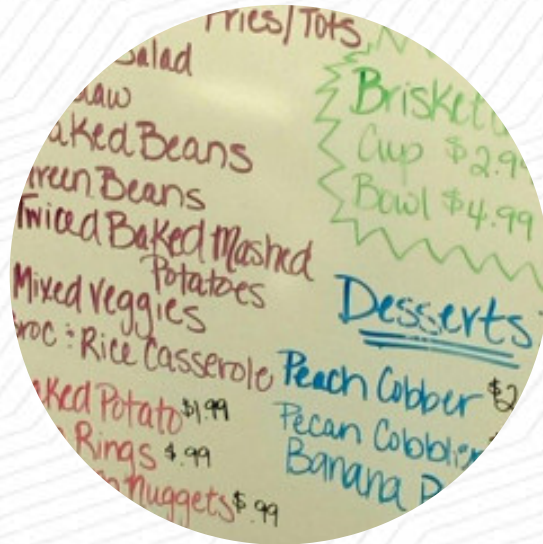 Fries/Tots
Salad
law
aked Beans
reen Beans
Twiced Baked Mashed
Potatoes
Mixed Veggies
roc & Rice Casserole
aked Potato $1.99
Rings $.99
Nuggets $.99
Brisket
Cup $2.9
Bowl $4.99
Desserts
Peach Cobber $2
Pecan Cobbl
Banana P